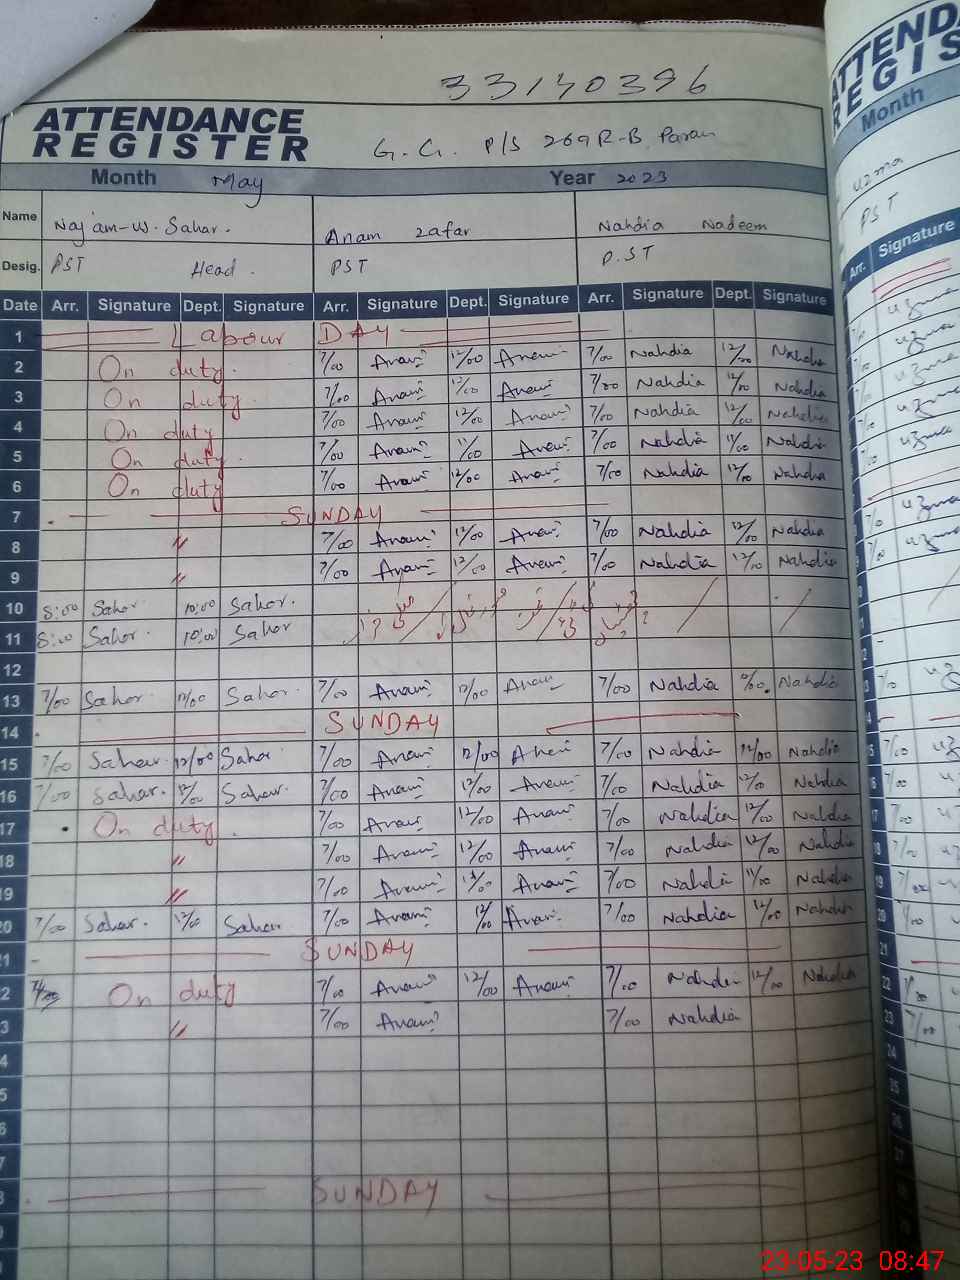 33140396
ATTENDANCE
REGISTER
G.G. P/S 269 R-B Paran
Month May Year 2023
Name Naj'am-w. Sahar. Anam Zafar Nahdia Nadeem
Desig. PST Head. PST P.ST
Date Arr. Signature Dept. Signature Arr. Signature Dept. Signature Arr. Signature Dept. Signature
1 Labour DAY
2 On duty. 7/00 Anam 12/00 Anam 7/00 Nahdia 12/00 Nahdia
3 On duty. 7/00 Anam 12/00 Anam 7/00 Nahdia 12/00 Nahdia
4 On duty 7/00 Anam 12/00 Anam 7/00 Nahdia 12/00 Nahdia
5 On duty. 7/00 Anam 11/00 Anam 7/00 Nahdia 11/00 Nahdia
6 On duty 7/00 Anam 12/00 Anam 7/00 Nahdia 12/00 Nahdia
7 SUNDAY
8 〃 7/00 Anam 12/00 Anam 7/00 Nahdia 12/00 Nahdia
9 〃 7/00 Anam 12/00 Anam 7/00 Nahdia 12/00 Nahdia
10 8:00 Sahar 10:00 Sahar.
11 8:00 Sahar. 10:00 Sahar
12
13 7/00 Sahar 12/00 Sahar. 7/00 Anam 12/00 Anam 7/00 Nahdia 12/00. Nahdia
14 SUNDAY
15 7/00 Sahar. 12/00 Sahar 7/00 Anam 12/00 Anam 7/00 Nahdia 12/00 Nahdia
16 7/00 Sahar. 12/00 Sahar. 7/00 Anam 12/00 Anam 7/00 Nahdia 12/00 Nahdia
17 On duty. 7/00 Anam 12/00 Anam 7/00 Nahdia 12/00 Nahdia
18 〃 7/00 Anam 12/00 Anam 7/00 Nahdia 12/00 Nahdia
19 〃 7/00 Anam 11/00 Anam 7/00 Nahdia 11/00 Nahdia
20 7/00 Sahar. 12/00 Sahar. 7/00 Anam 12/00 Anam 7/00 Nahdia 12/00 Nahdia
1 SUNDAY
2 On duty 7/00 Anam 12/00 Anam 7/00 Nahdia 12/00 Nahdia
3 〃 7/00 Anam 7/00 Nahdia
4
5
6
7
8 SUNDAY
9
ATTEND
REGIS
Month
uzma
PST
Arr. Signature
uzma
uzma
uzma
uzma
uzma
22 7/00
23 7/00
24
25
26
27
23-05-23 08:47